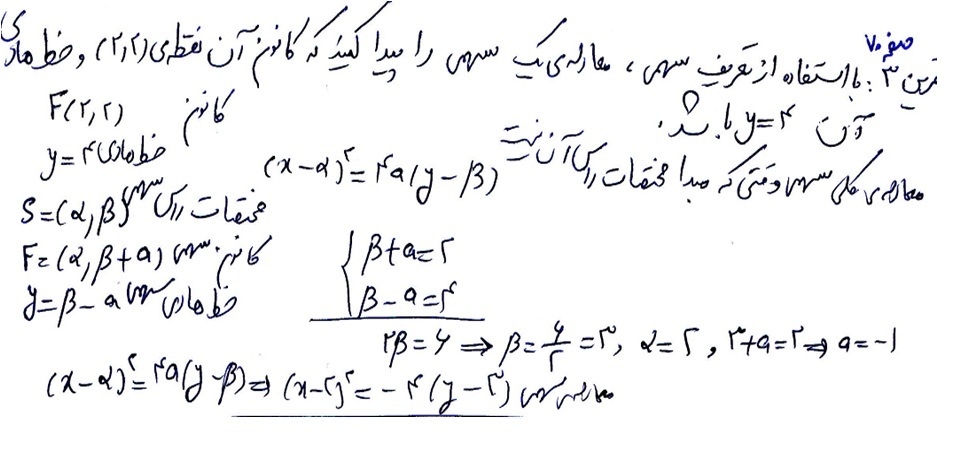 صفحه ۷۰
تمرین ۳: با استفاده از تعریف سهمی، معادله‌ی یک سهمی را پیدا کنید که کانون آن نقطه‌ی (۲,۲) و خط هادی
آن y=۴ باشد.
کانون F(۲,۲)
خط هادی y=۴
معادله‌ی کلی سهمی وقتی که مبدا مختصات راس آن نیست (x-α)^۲=۴a(y-β)
مختصات راس سهمی S=(α,β)
کانون سهمی F=(α,β+a)
خط هادی سهمی y=β-a
{β+a=۲
β-a=۴
۲β=۶ ⇒ β=۶/۲=۳, α=۲, ۳+a=۲ ⇒ a=-۱
(x-α)^۲=۴a(y-β) ⇒ (x-۲)^۲=-۴(y-۳) معادله سهمی